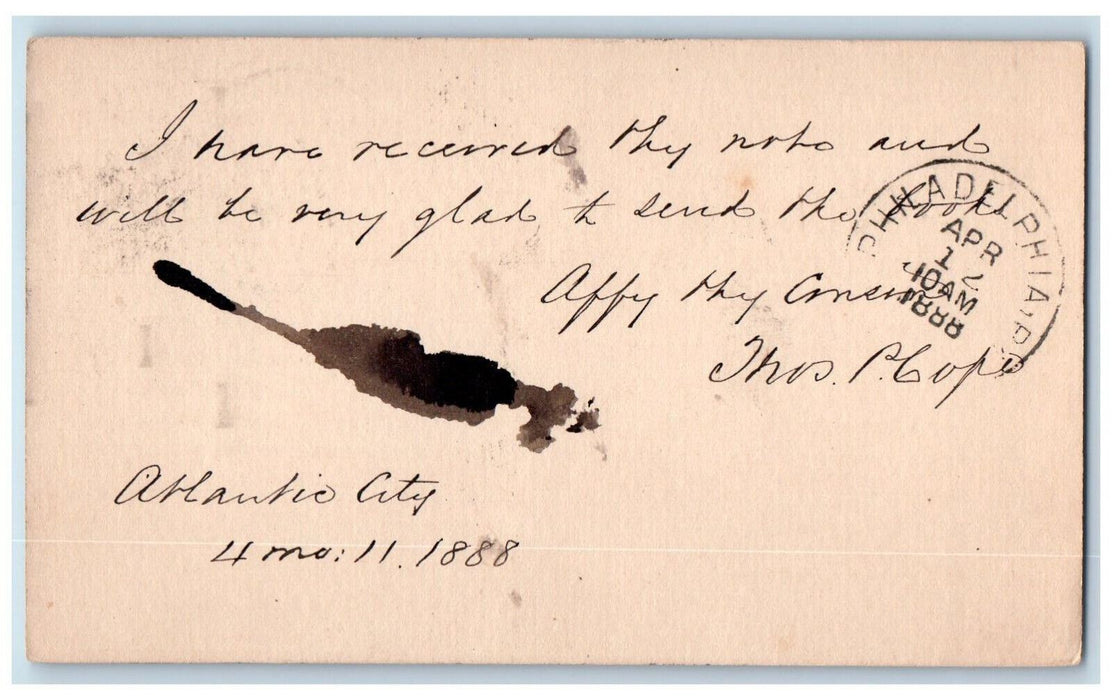 I have received thy note and
will be very glad to send the books
Affy thy Cousin
Thos. P. Cope
Atlantic City
4 mo: 11. 1888
PHILADELPHIA, PA
APR
12
10 AM
1888